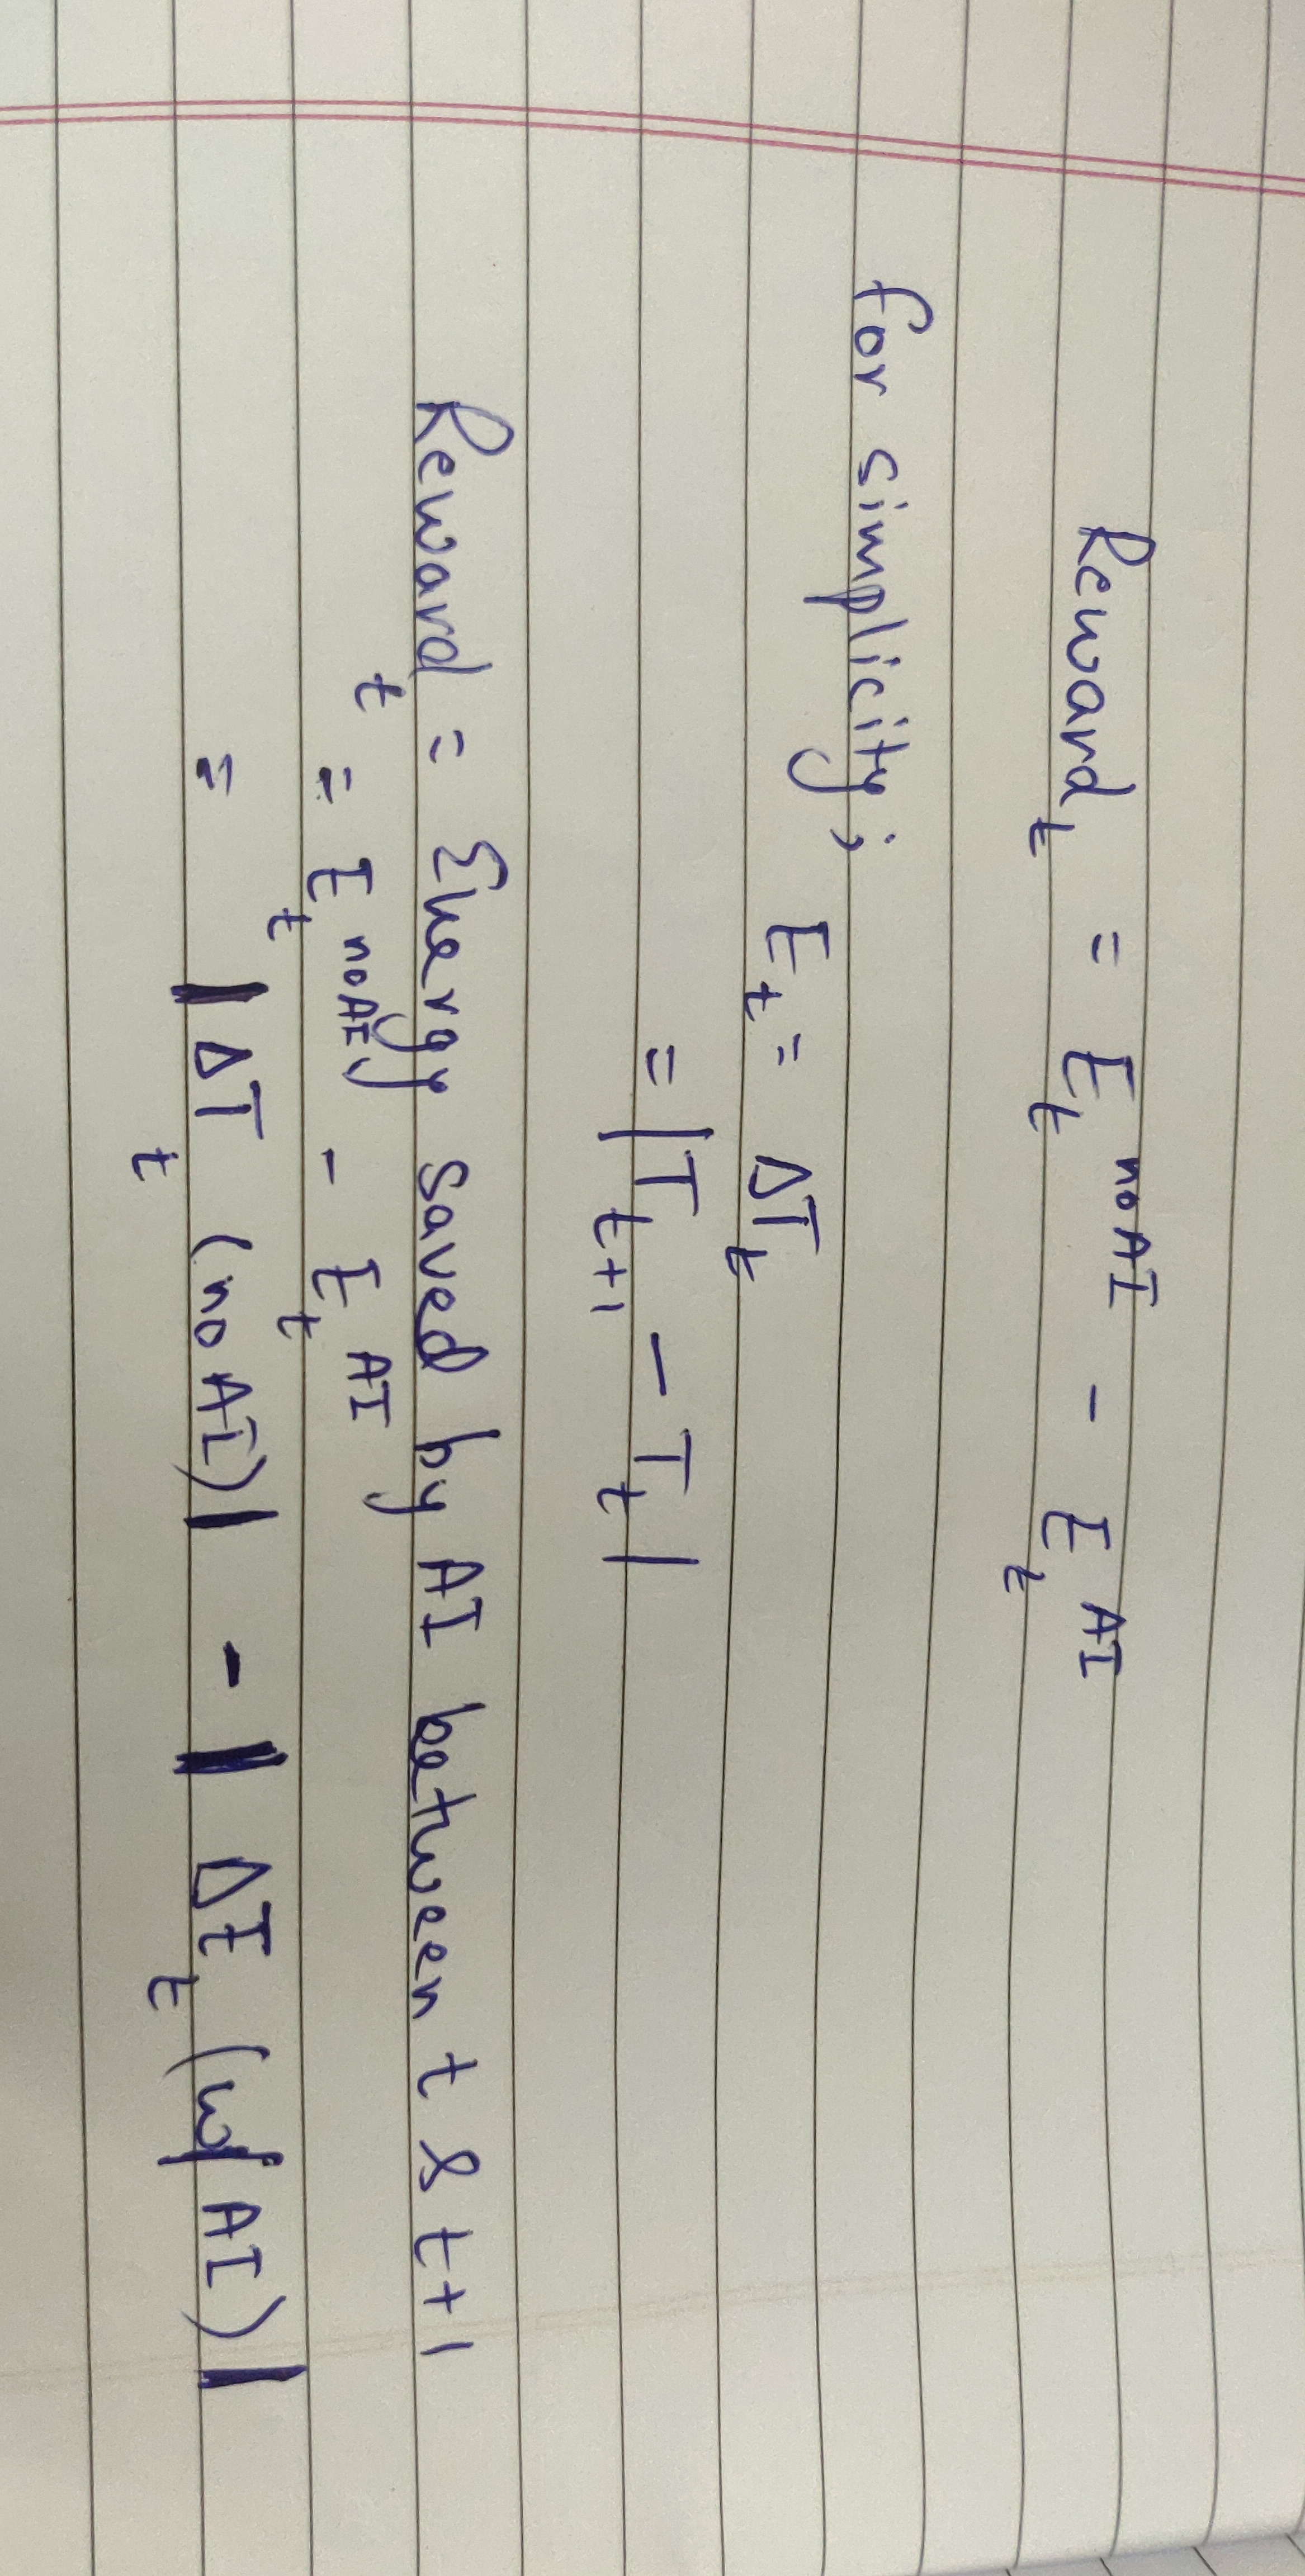 Reward_t = E_t^noAI - E_t^AI
for simplicity; E_t = ΔT_t
= |T_t+1 - T_t|
Reward_t = Energy saved by AI between t & t+1
= E_t^noAI - E_t^AI
= |ΔT_t (noAI)| - |ΔT_t (w/ AI)|